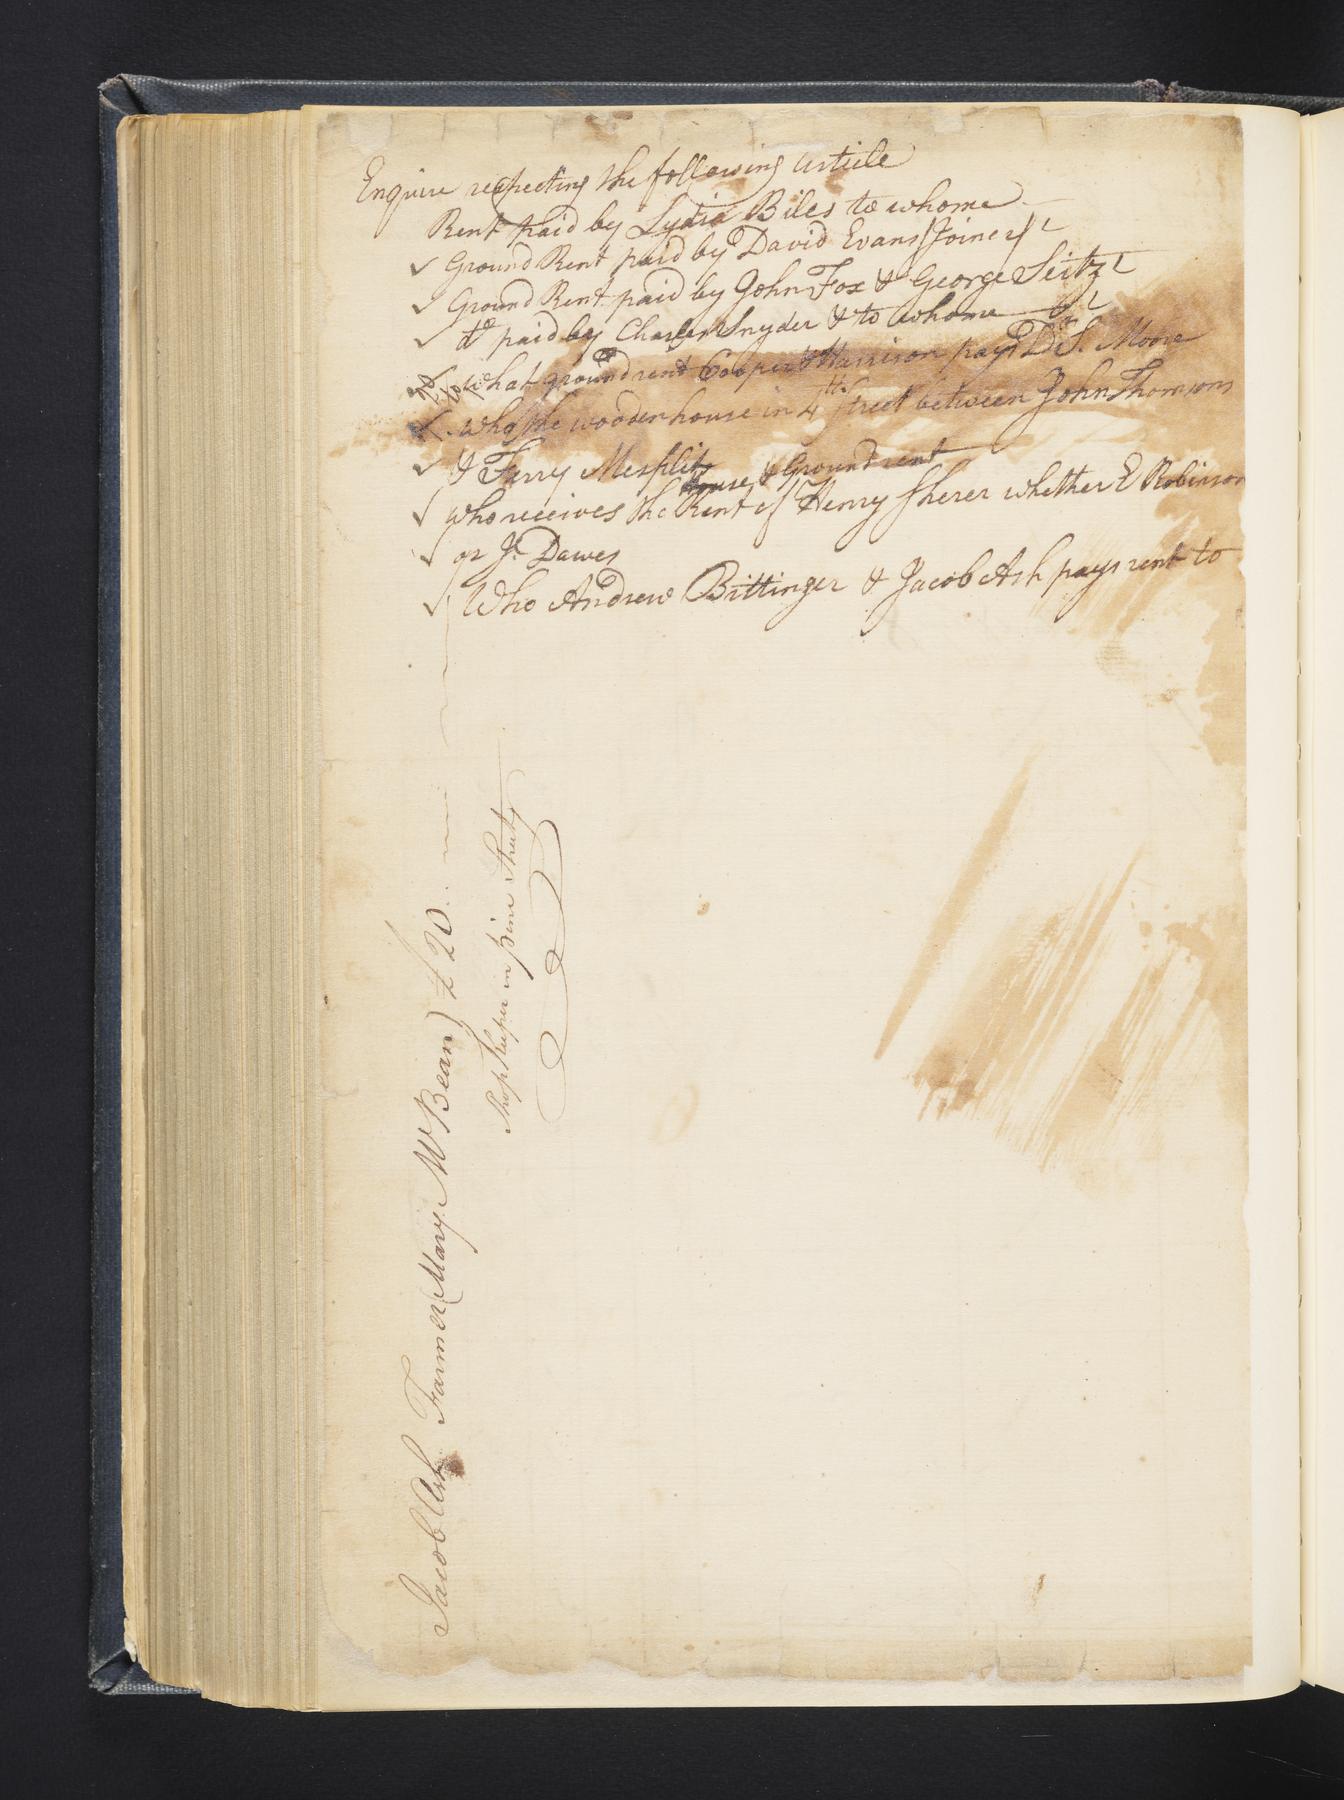 Enquire respecting the following article
Rent paid by Lydia Biles to whome
✓ Ground Rent paid by David Evans (Joiner)
✓ Ground Rent paid by John Fox & George Seitz
✓ do paid by Charles Snyder & to whome
to what ground rent Cooper & Harrison pays Dr S. Moore
✓ . who the wooden house in 4th Street between John Thomsons
✓ & Ferry Mesplit house & Ground rent
✓ who receives the Rent of Henry Sherer whether E Robinson
✓ or Js Dawes
✓ Who Andrew Bittinger & Jacob Ash pays rent to
Jacob Ash Farmer (Mary McBean) £ 20
Shop Keeper in pine Street